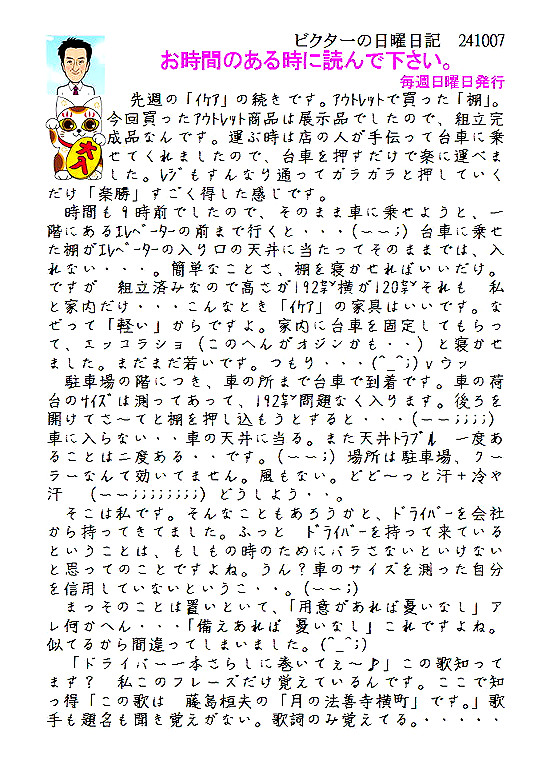 ビクターの日曜日記　241007
お時間のある時に読んで下さい。
毎週日曜日発行
先週の「ｲｹｱ」の続きです。ｱｳﾄﾚｯﾄで買った「棚」。
今回買ったｱｳﾄﾚｯﾄ商品は展示品でしたので、組立完
成品なんです。運ぶ時は店の人が手伝って台車に乗
せてくれましたので、台車を押すだけで楽に運べま
した。ﾚｼﾞもすんなり通ってガラガラと押していく
だけ「楽勝」すごく得した感じです。
時間も９時前でしたので、そのまま車に乗せようと、一
階にあるｴﾚﾍﾞｰﾀｰの前まで行くと・・・(~~;) 台車に乗せ
た棚がｴﾚﾍﾞｰﾀｰの入り口の天井に当たってそのままでは、入
れない・・・。簡単なことさ、棚を寝かせればいいだけ。
ですが　組立済みなので高さが192㌢横が120㌢それも　私
と家内だけ・・・こんなとき「ｲｹｱ」の家具はいいです。な
ぜって「軽い」からですよ。家内に台車を固定してもらっ
て、エッコラショ（このへんがオジンかも・・）と寝かせ
ました。まだまだ若いです。つもり・・・(^_^;)ｖウッ
駐車場の階につき、車の所まで台車で到着です。車の荷
台のｻｲｽﾞは測ってあって、192㌢問題なく入ります。後ろを
開けてさ～てと棚を押し込もうとすると・・・(~~;;;;)
車に入らない・・車の天井に当る。また天井ﾄﾗﾌﾞﾙ　一度あ
ることは二度ある・・です。(~~;) 場所は駐車場、ク－
ラーなんて効いてません。風もない。どど～っと汗＋冷や
汗　(~~;;;;;;;;) どうしよう・・。
そこは私です。そんなこともあろうかと、ﾄﾞﾗｲﾊﾞｰを会社
から持ってきてました。ふっと　ﾄﾞﾗｲﾊﾞｰを持って来ている
ということは、もしもの時のためにバラさないといけない
と思ってのことですよね。うん？車のサイズを測った自分
を信用していないというこ・・。(~~;)
まっそのことは置いといて、「用意があれば憂いなし」ア
レ何かへん・・・「備えあれば 憂いなし」これですよね。
似てるから間違ってしまいました。(^_^;)
「ドライバー一本さらしに巻いてぇ～♪」この歌知って
ます？　私このフレーズだけ覚えているんです。ここで知
っ得「この歌は　藤島桓夫の「月の法善寺横町」です。」歌
手も題名も聞き覚えがない。歌詞のみ覚えてる。・・・・・